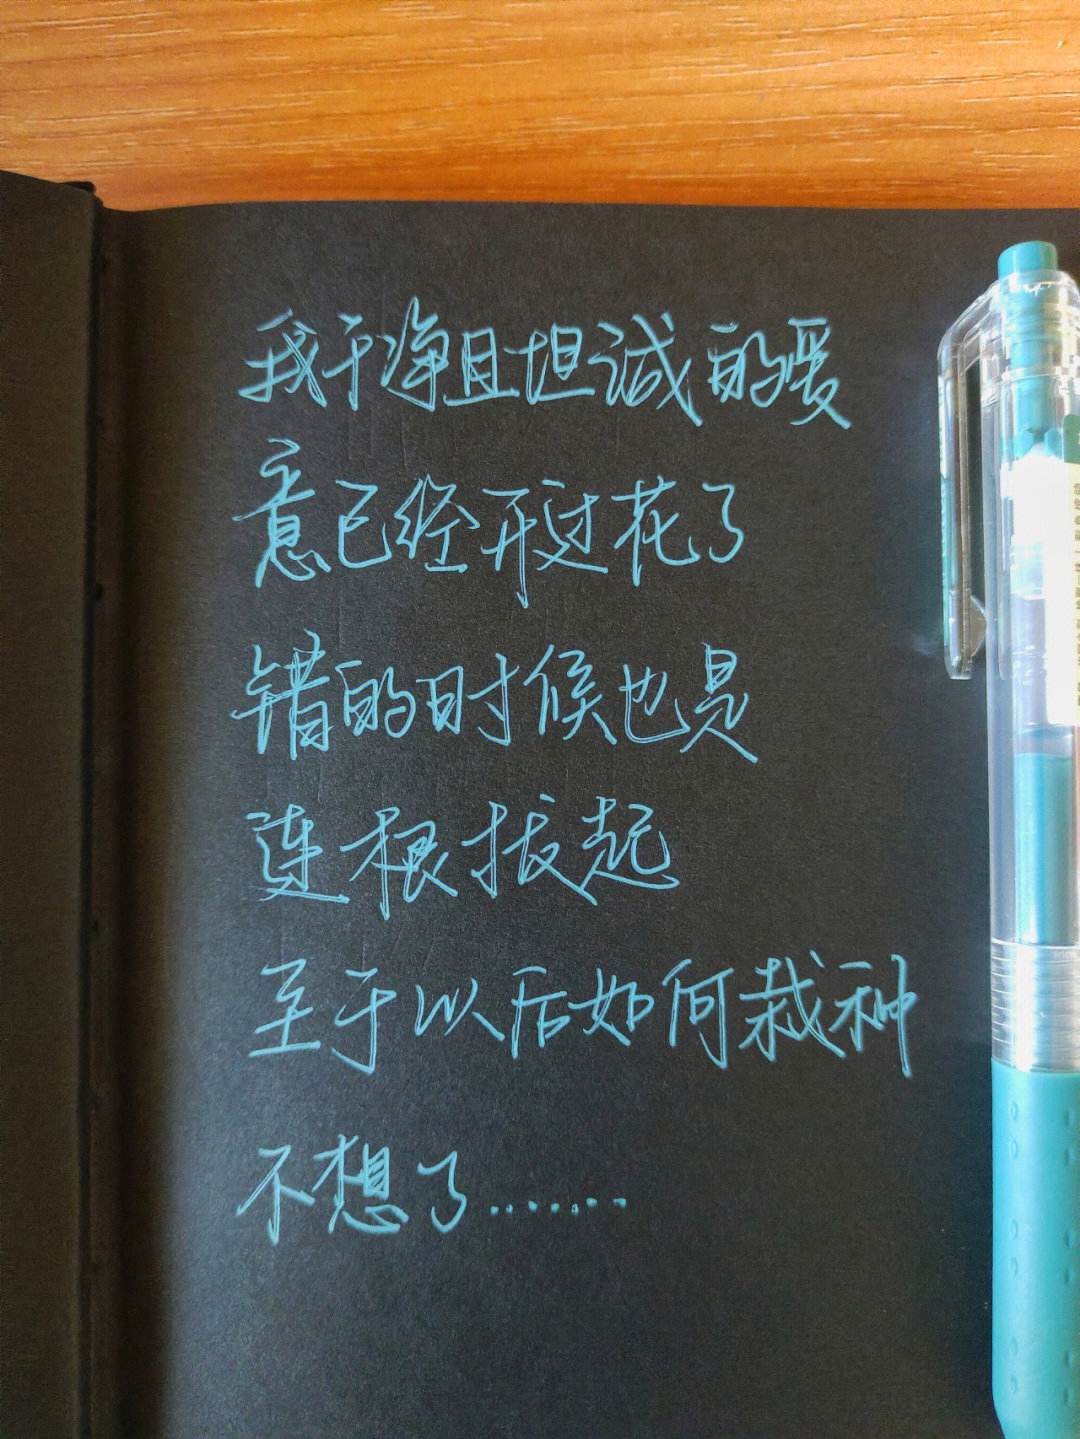 我干净且坦诚的爱
意已经开过花了
错的时候也是
连根拔起
至于以后如何栽种
不想了.......